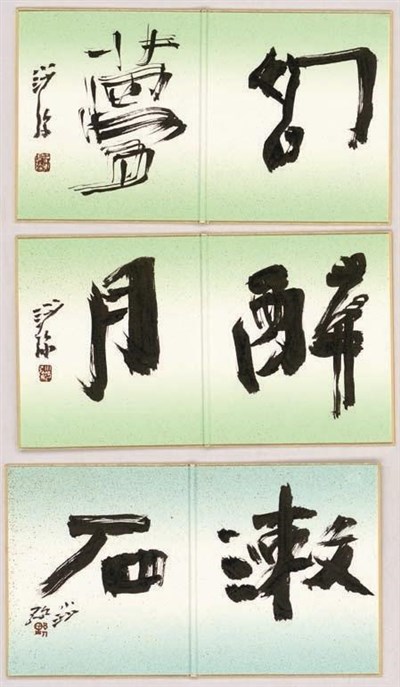 幻夢
醉月
漱石